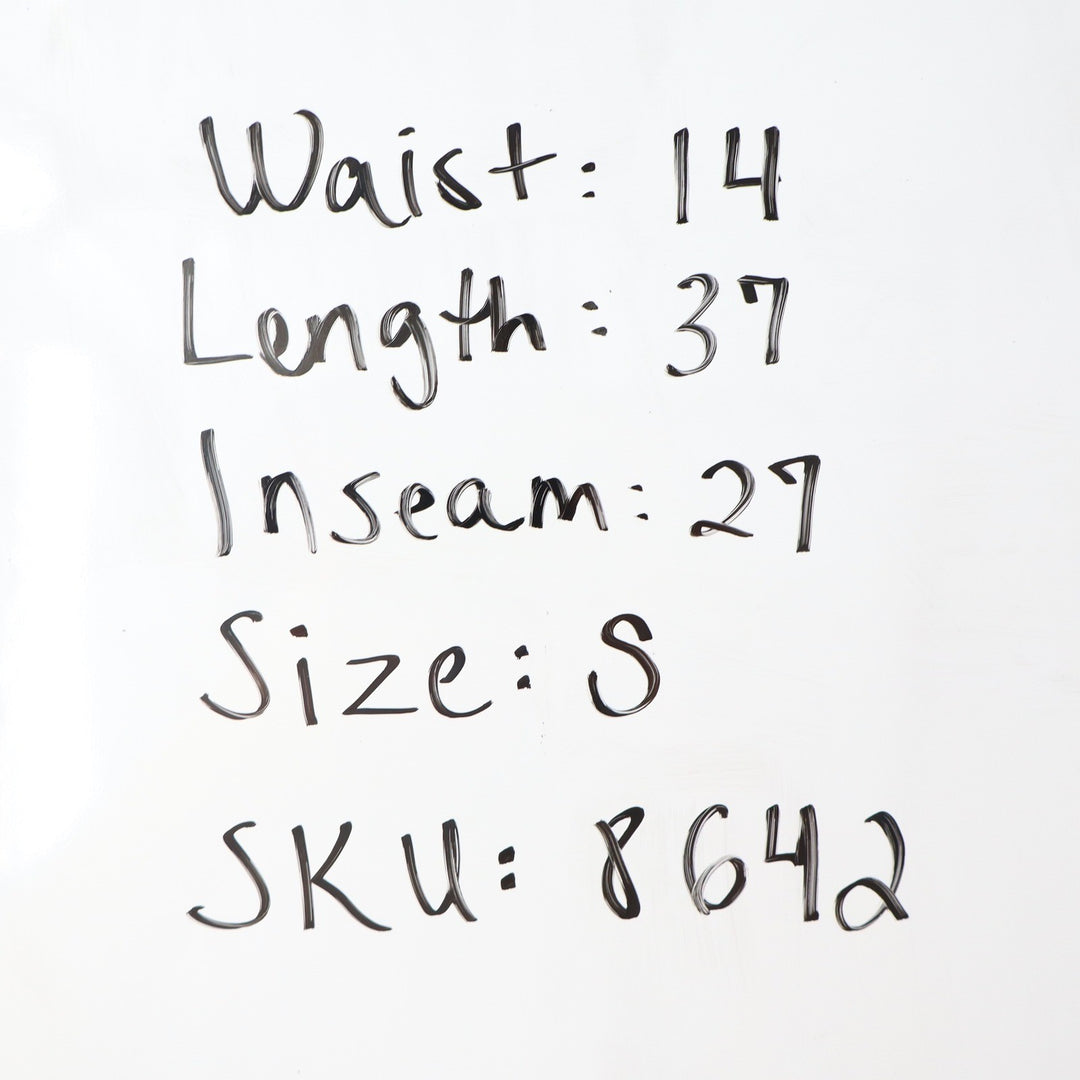 Waist: 14
Length: 37
Inseam: 27
Size: S
SKU: 8642